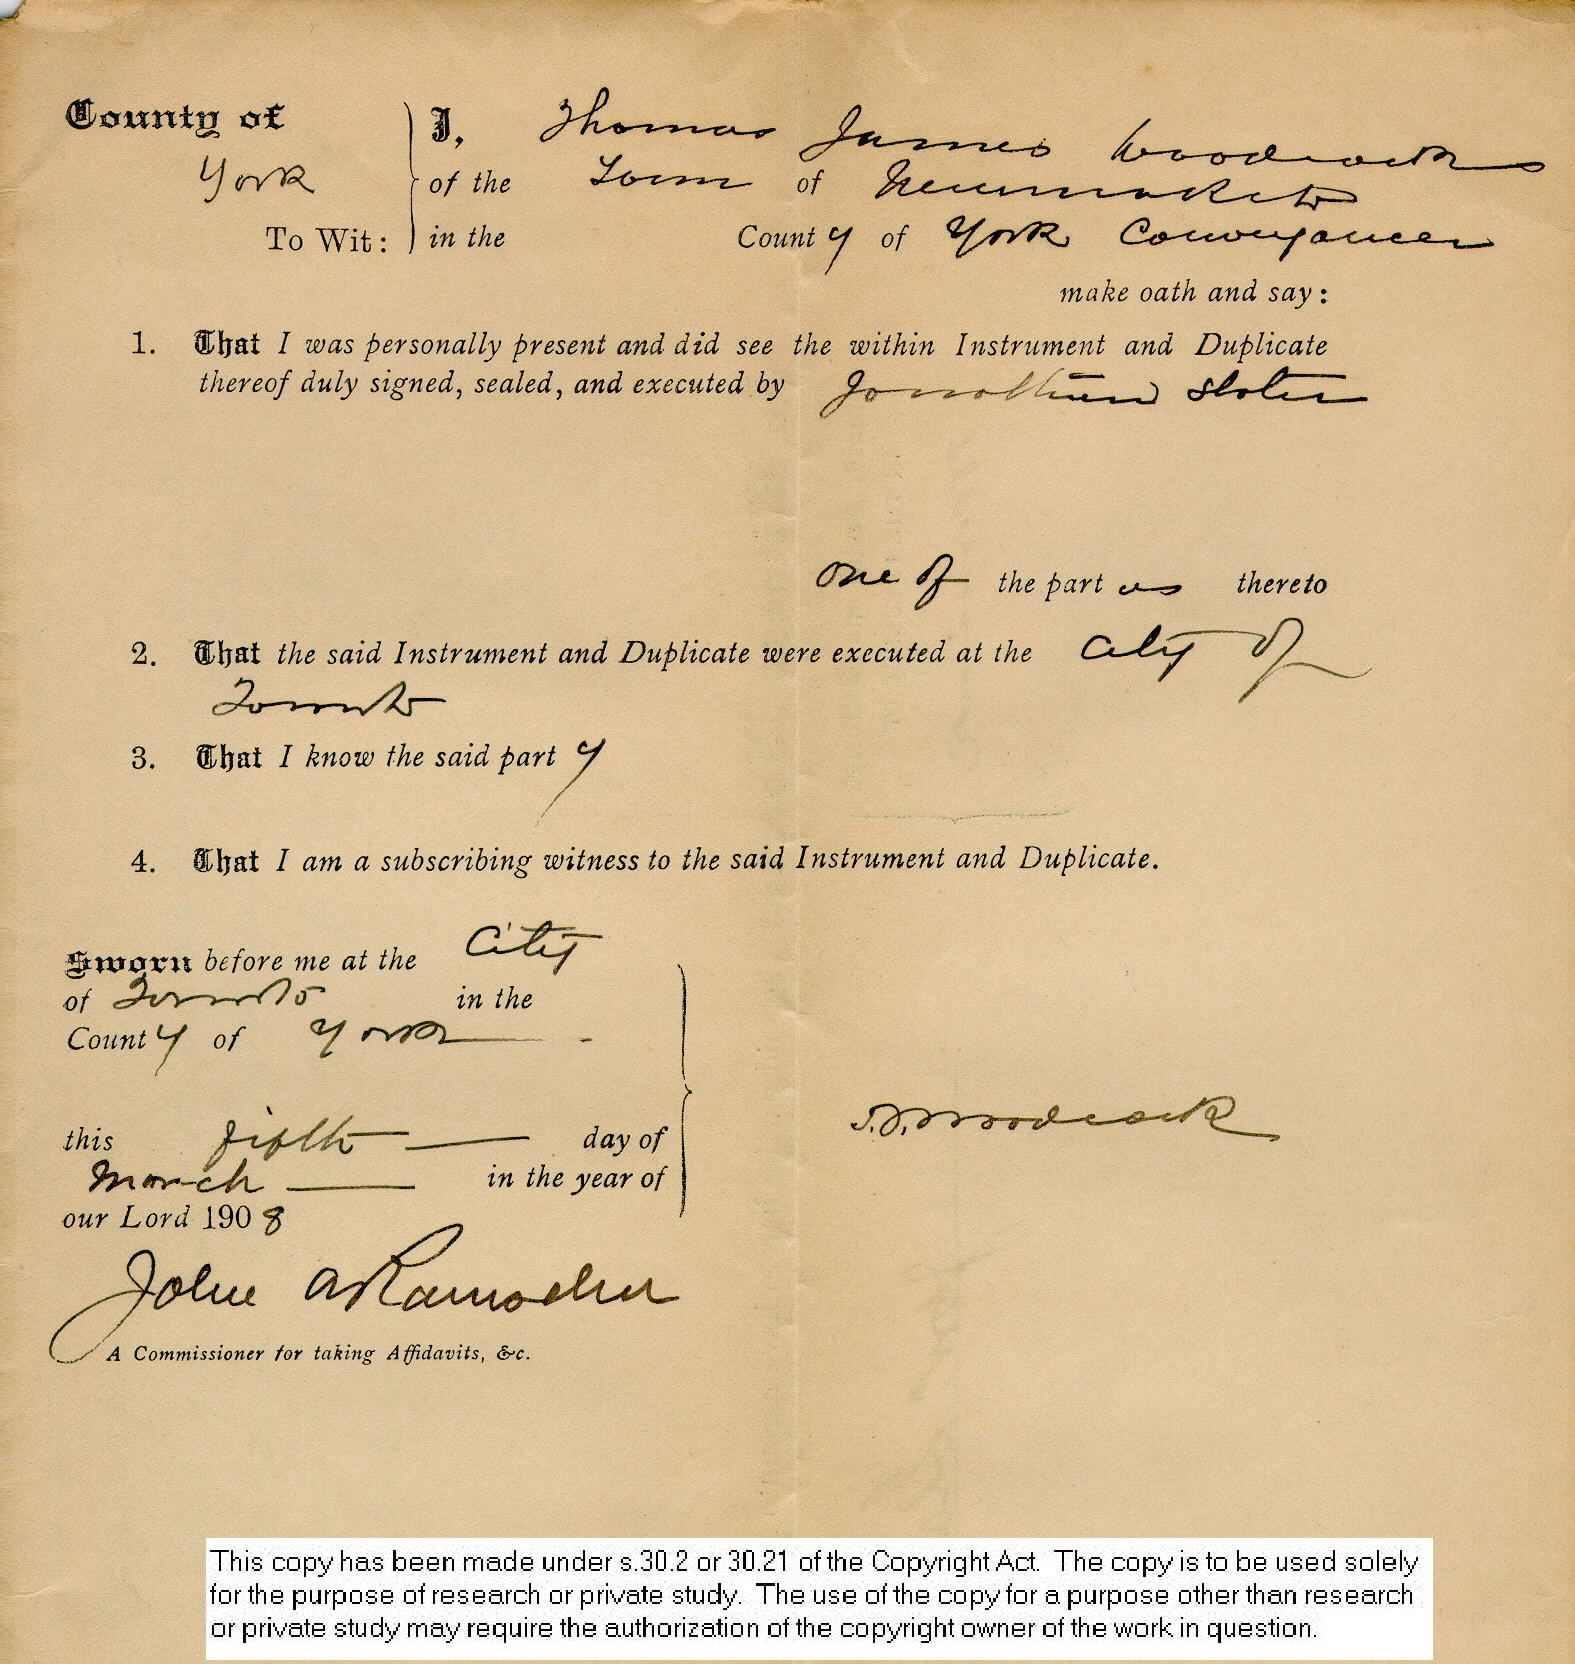 County of
York
To Wit:
I, Thomas James Woodcock
of the Town of Newmarket
in the County of York Conveyancer
make oath and say:
1. That I was personally present and did see the within Instrument and Duplicate
thereof duly signed, sealed, and executed by Jonathan Sloter
one of the part es thereto
2. That the said Instrument and Duplicate were executed at the City of
Toronto
3. That I know the said part y
4. That I am a subscribing witness to the said Instrument and Duplicate.
Sworn before me at the City
of Toronto in the
County of York
this fifth day of
March in the year of
our Lord 1908
T.J. Woodcock
John A
A Commissioner for taking Affidavits, &c.
This copy has been made under s.30.2 or 30.21 of the Copyright Act. The copy is to be used solely
for the purpose of research or private study. The use of the copy for a purpose other than research
or private study may require the authorization of the copyright owner of the work in question.